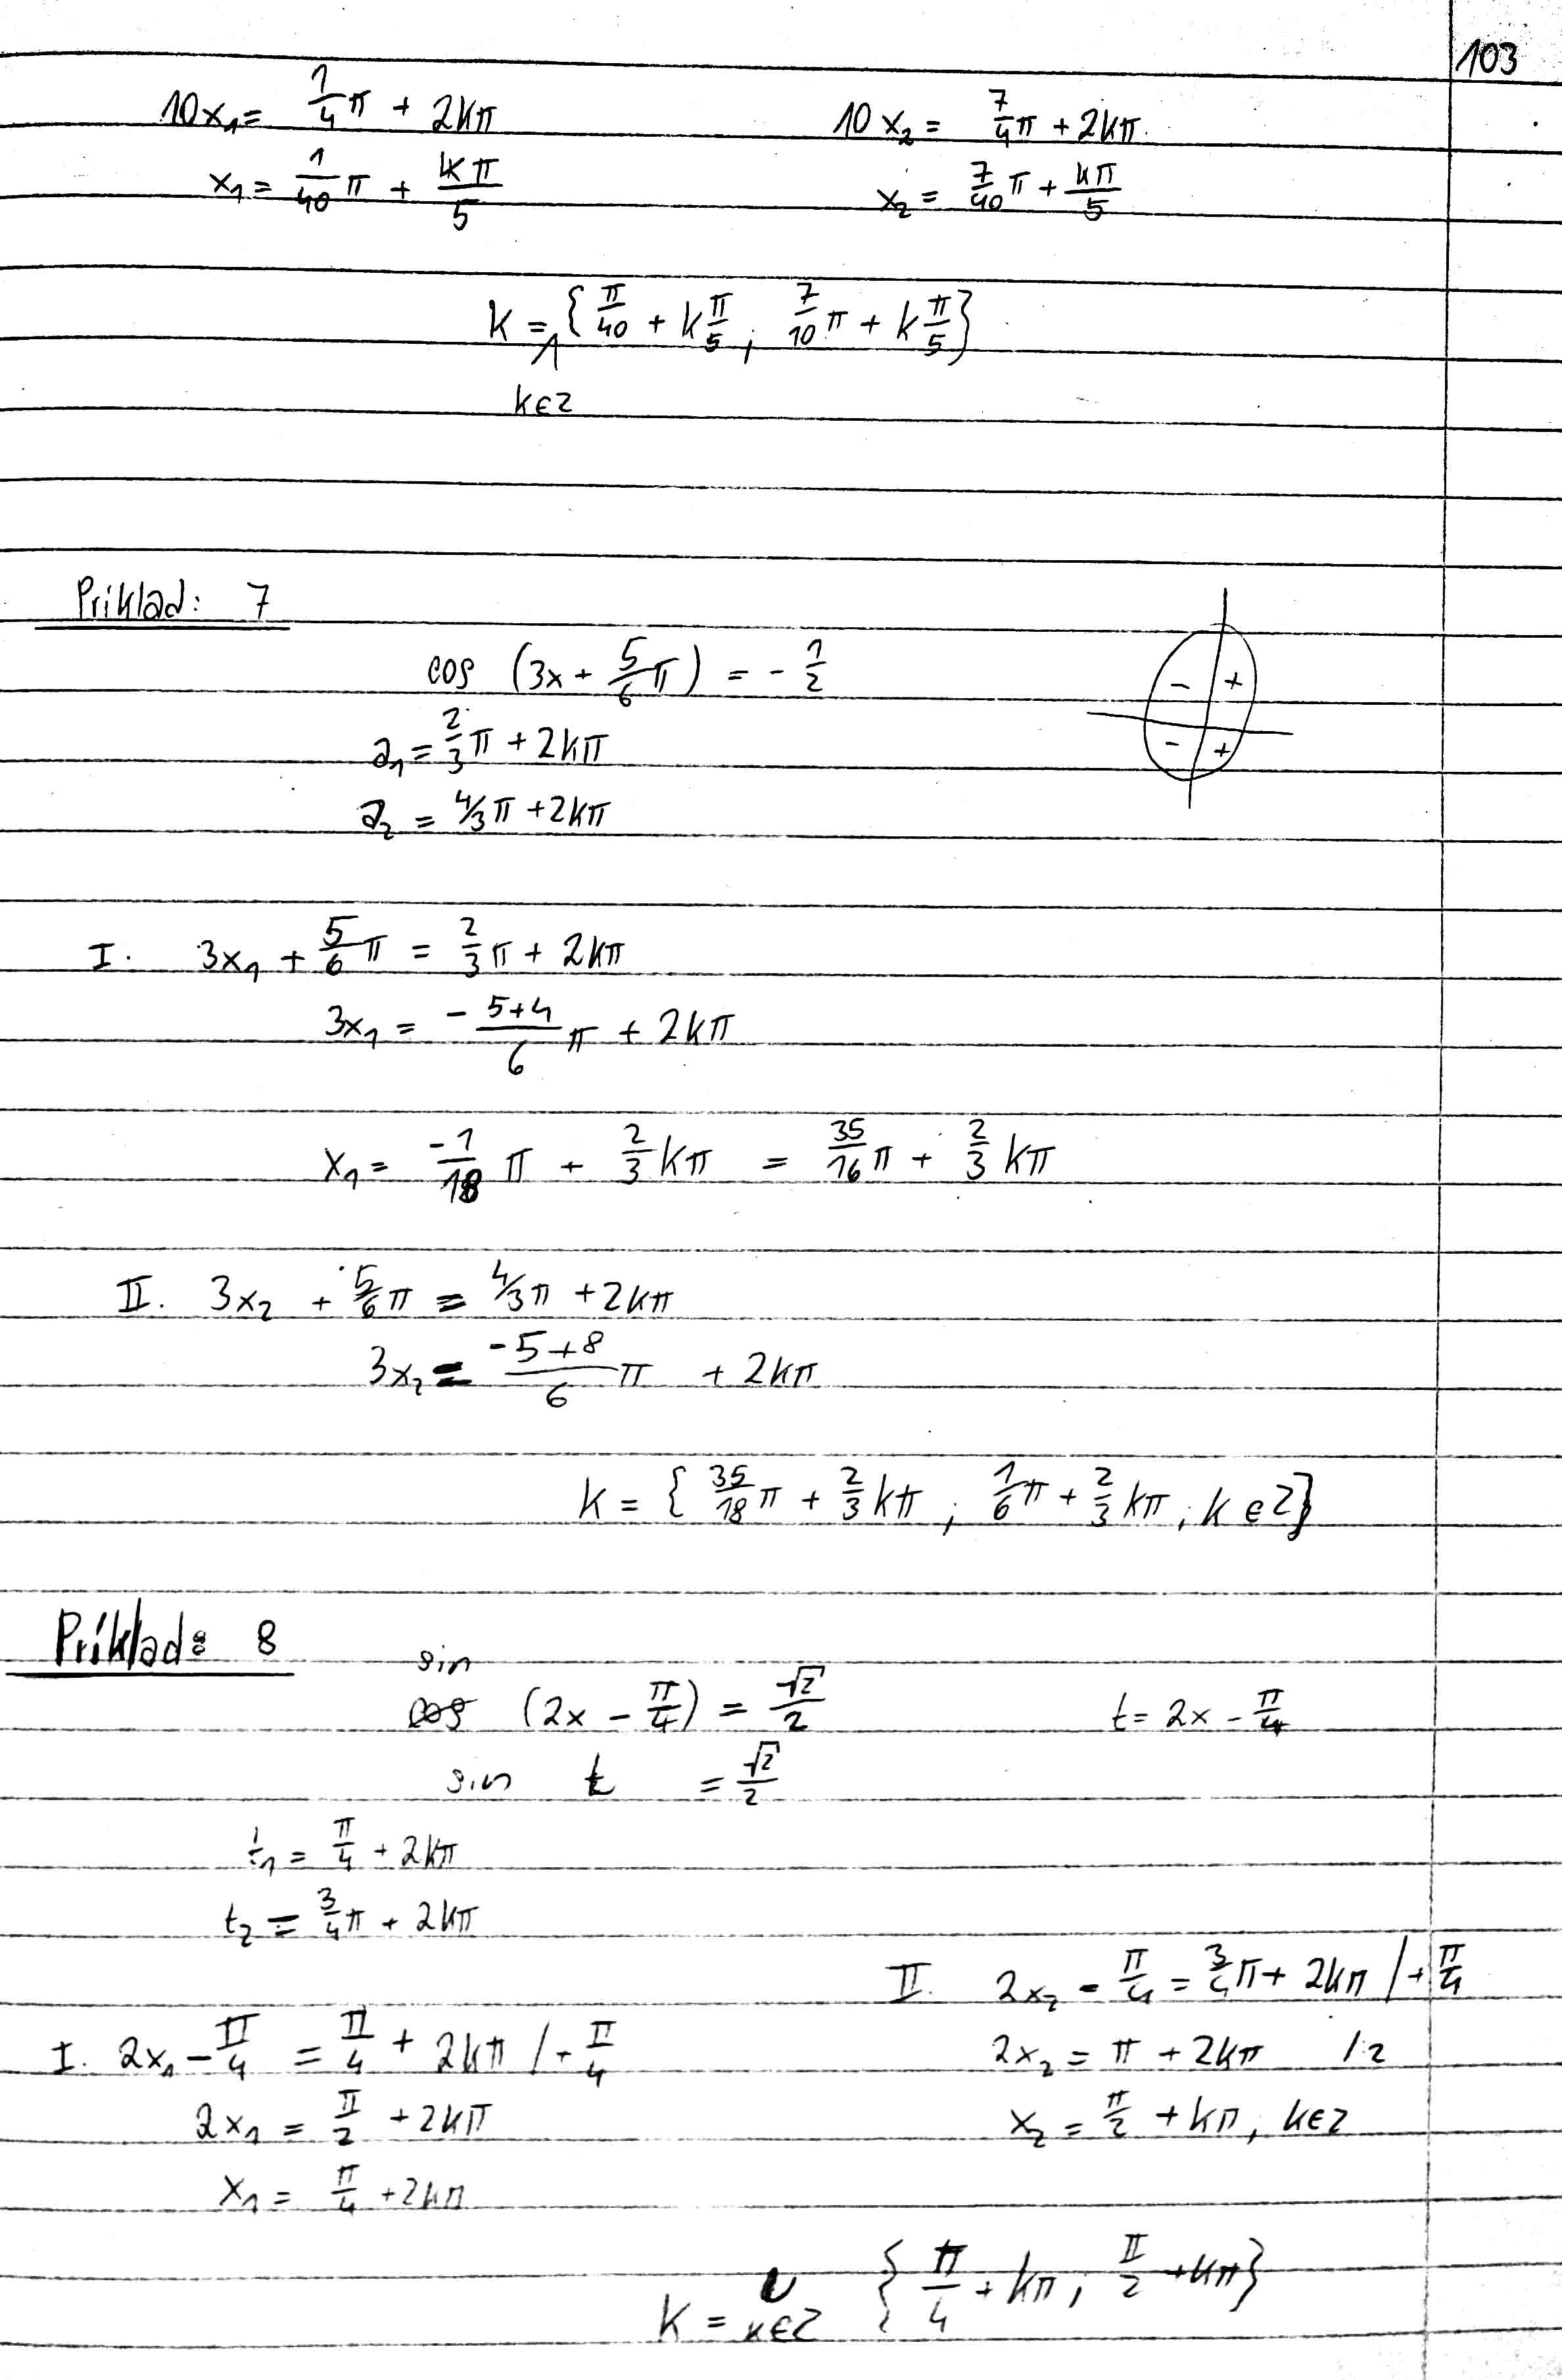 103
10x₁ = 1/4 π + 2kπ 10x₂ = 7/4 π + 2kπ
x₁ = 1/40 π + kπ/5 x₂ = 7/40 π + kπ/5
K = { π/40 + k π/5 ; 7/10 π + k π/5 }
k∈Z
Príklad: 7
cos (3x + 5/6 π) = - 1/2
- +
- +
a₁ = 2/3 π + 2kπ
a₂ = 4/3 π + 2kπ
I. 3x₁ + 5/6 π = 2/3 π + 2kπ
3x₁ = (-5+4)/6 π + 2kπ
x₁ = -1/18 π + 2/3 kπ = 35/16 π + 2/3 kπ
II. 3x₂ + 5/6 π = 4/3 π + 2kπ
3x₂ = (-5+8)/6 π + 2kπ
K = { 35/18 π + 2/3 kπ ; 1/6 π + 2/3 kπ ; k∈Z }
Príklad: 8
sin
cos (2x - π/4) = √2/2 t = 2x - π/4
sin t = √2/2
t₁ = π/4 + 2kπ
t₂ = 3/4 π + 2kπ
II. 2x₂ - π/4 = 3/4 π + 2kπ /+ π/4
I. 2x₁ - π/4 = π/4 + 2kπ /+ π/4 2x₂ = π + 2kπ /:2
2x₁ = π/2 + 2kπ x₂ = π/2 + kπ, k∈Z
x₁ = π/4 + 2kπ
K = ∪ k∈Z { π/4 + kπ ; π/2 + kπ }